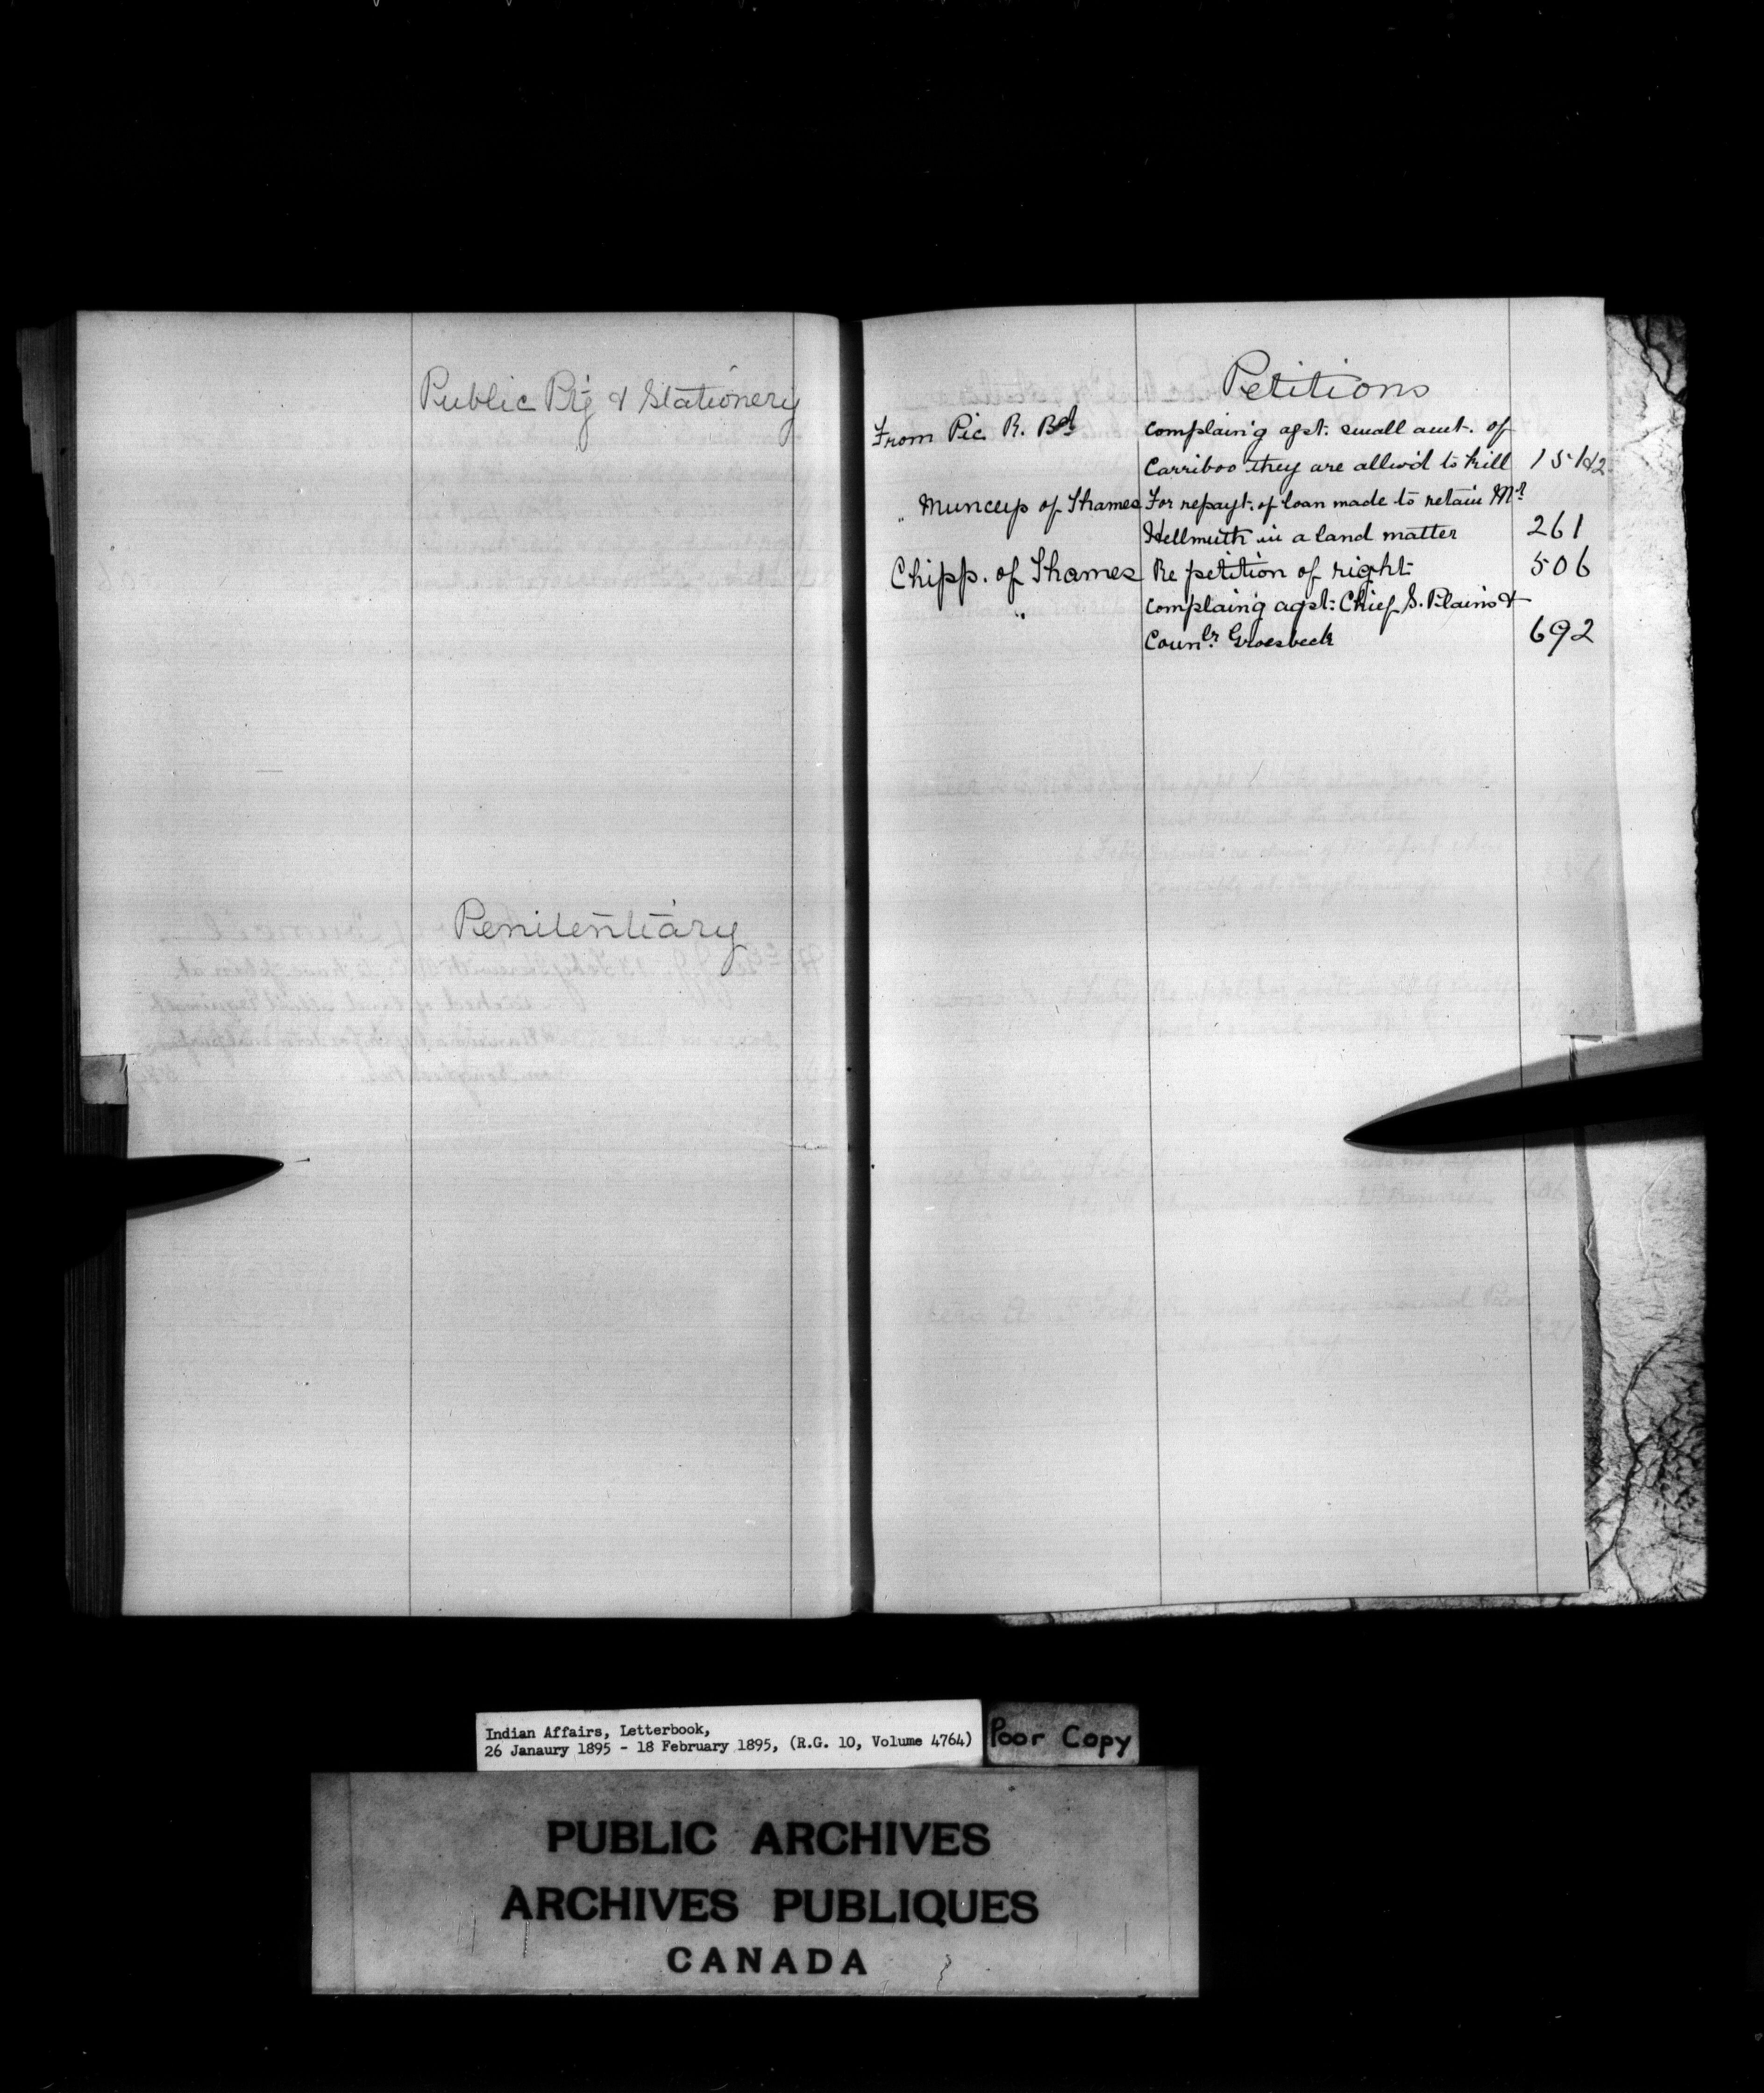 Public Pt'g & Stationery
Penitentiary
Petitions
From Pic R. Bd complain'g agst. small amt. of
Carriboo they are allow'd to kill
" Munceys of Thames For repayt. of loan made to retain Mr
Hellmuth in a land matter 261
Chipp. of Thames Re petition of right 506
" complain'g agst. Chief S. Plain &
Counlr. Groesbeck 692
Indian Affairs, Letterbook,
26 Janaury 1895 - 18 February 1895, (R.G. 10, Volume 4764)
Poor Copy
PUBLIC ARCHIVES
ARCHIVES PUBLIQUES
CANADA